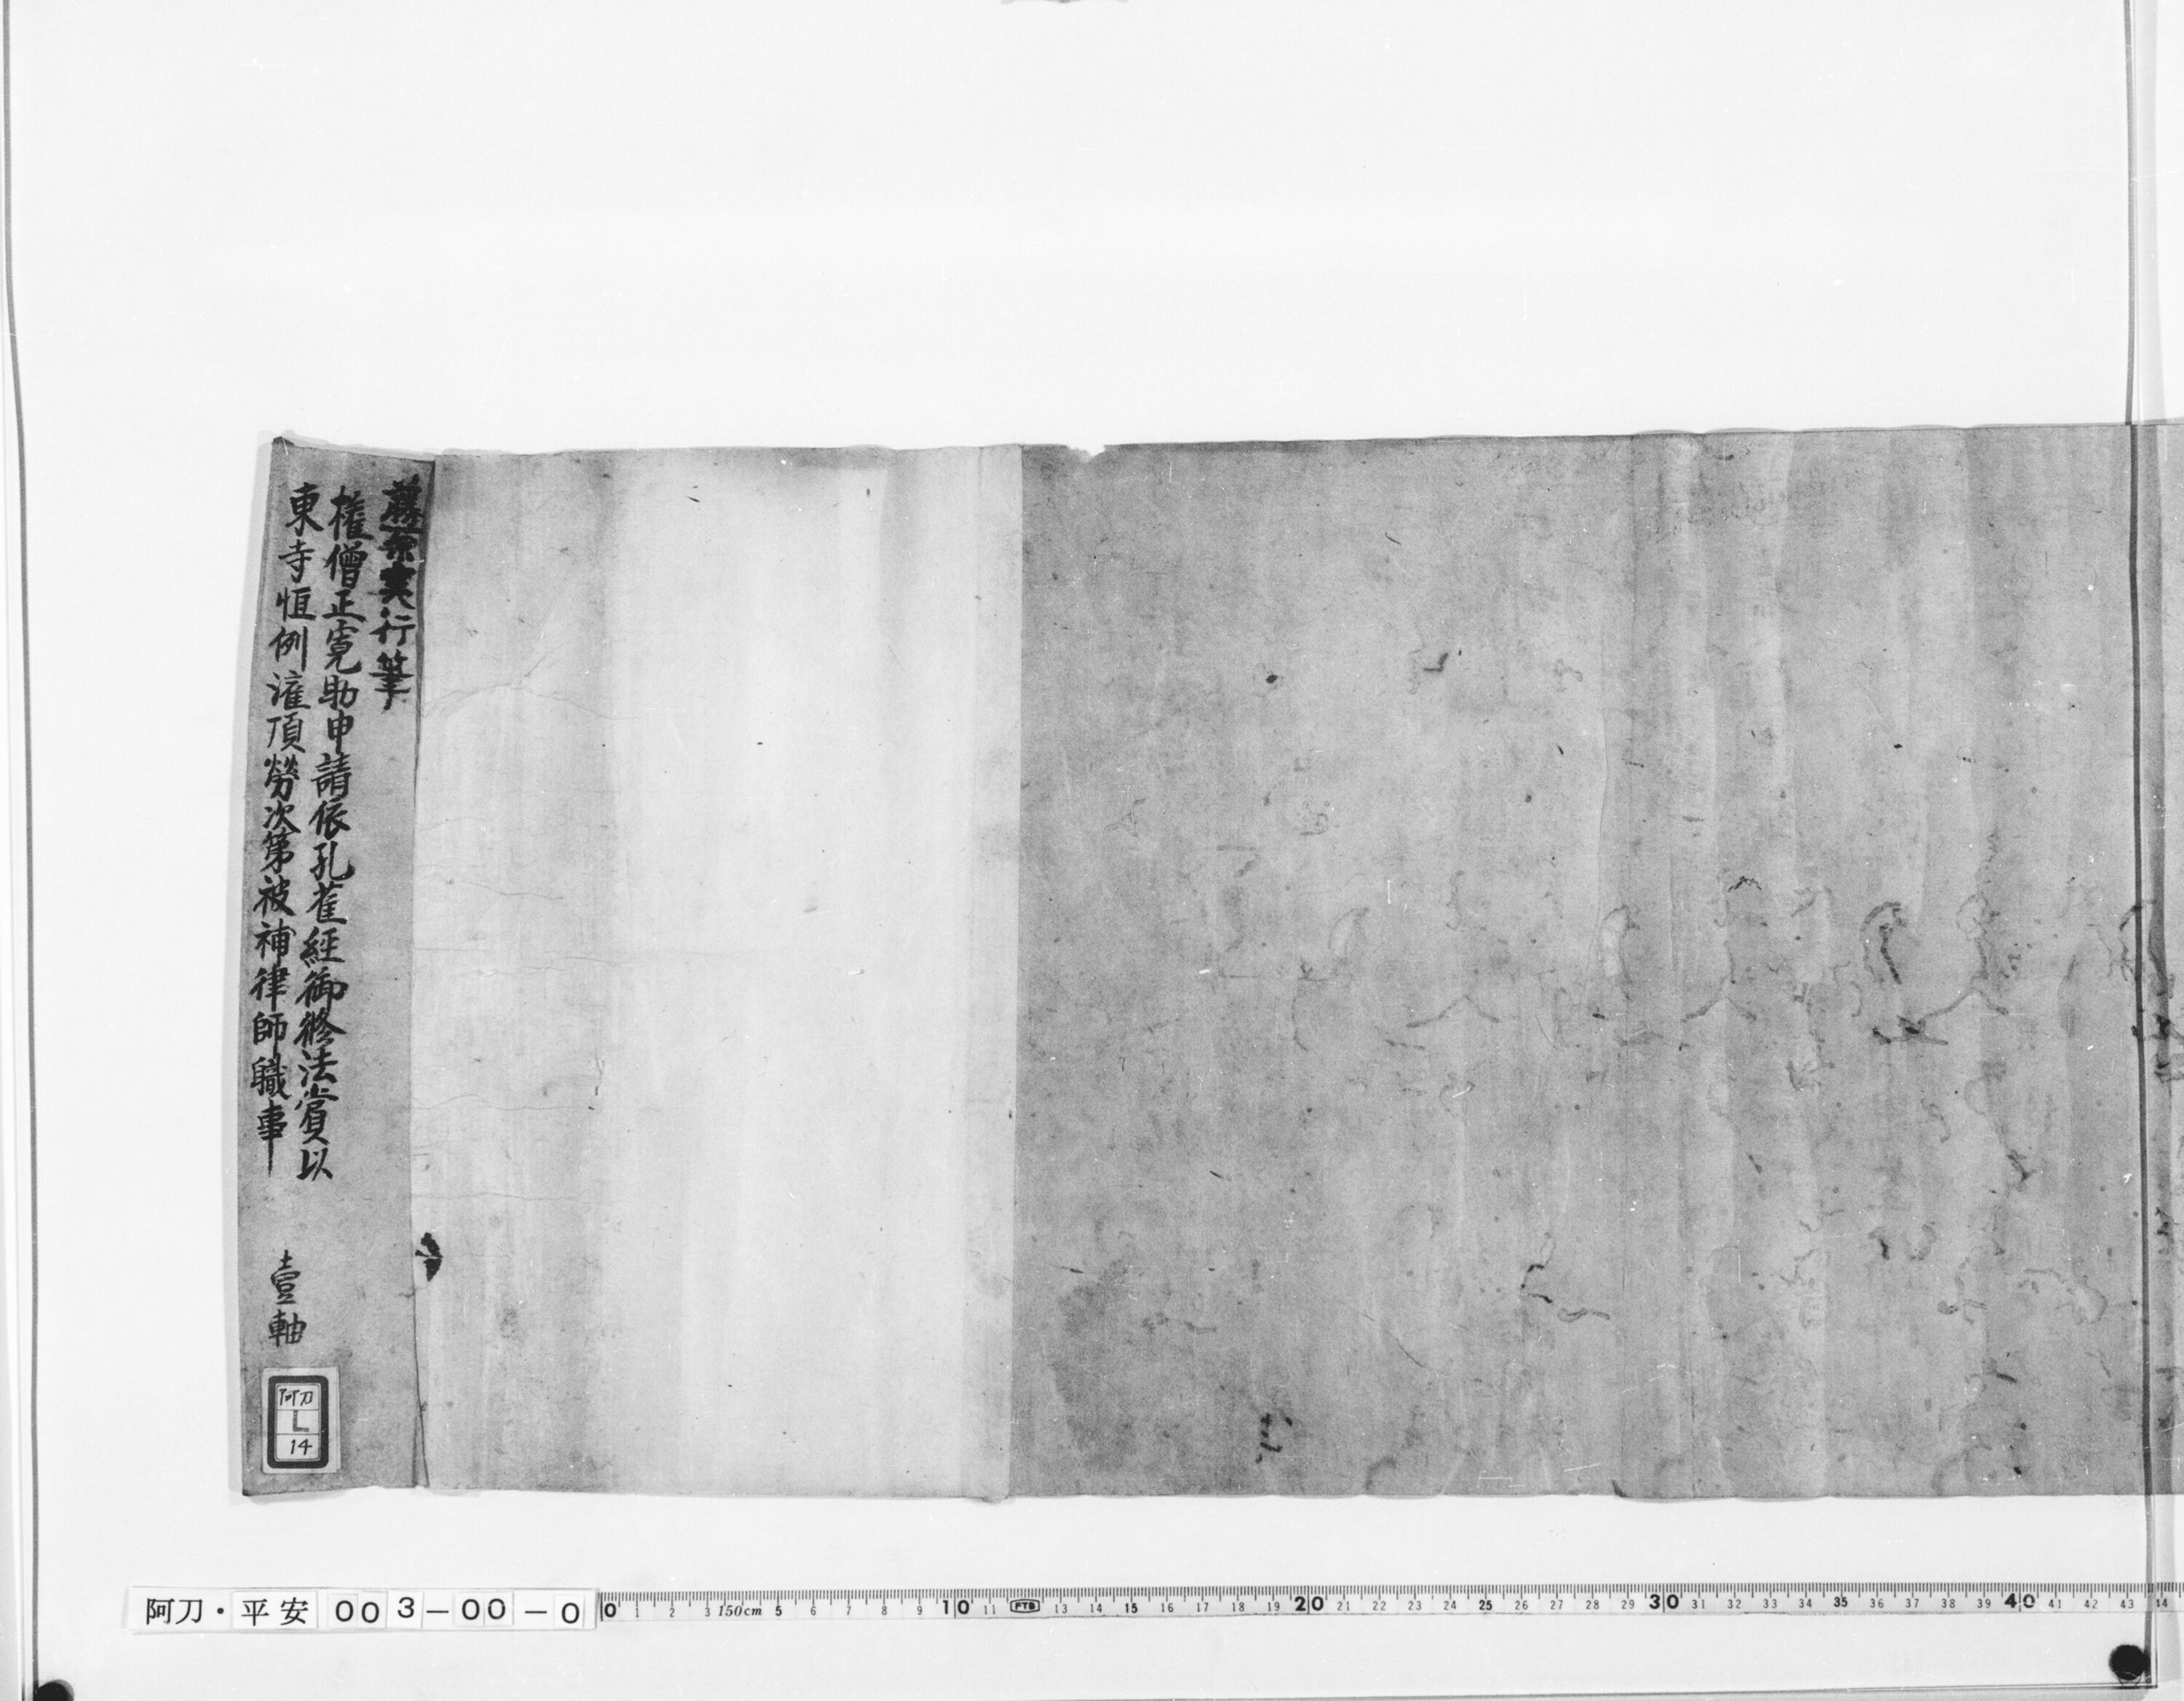 藤原実行筆
権僧正寛助申請依孔雀経御修法賞以
東寺恒例灌頂労次第被補律師職事
壹軸
阿刀
L
14
阿刀・平安 003-00-0
0 1 2 3 150cm 5 6 7 8 9 10 11 PTB 13 14 15 16 17 18 19 20 21 22 23 24 25 26 27 28 29 30 31 32 33 34 35 36 37 38 39 40 41 42 43 44